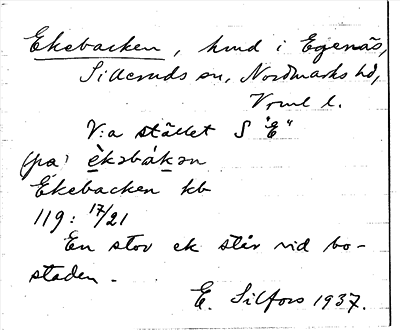 Ekebacken, hmd i Egenäs,
Silleruds sn, Nordmarks hd,
Vrml l.
V:a stället S "E"
(på) è̱kǝbáḵǝn
Ekebacken kb
119: 17/21
En stor ek står vid bo-
staden.
E. Silfors 1937.